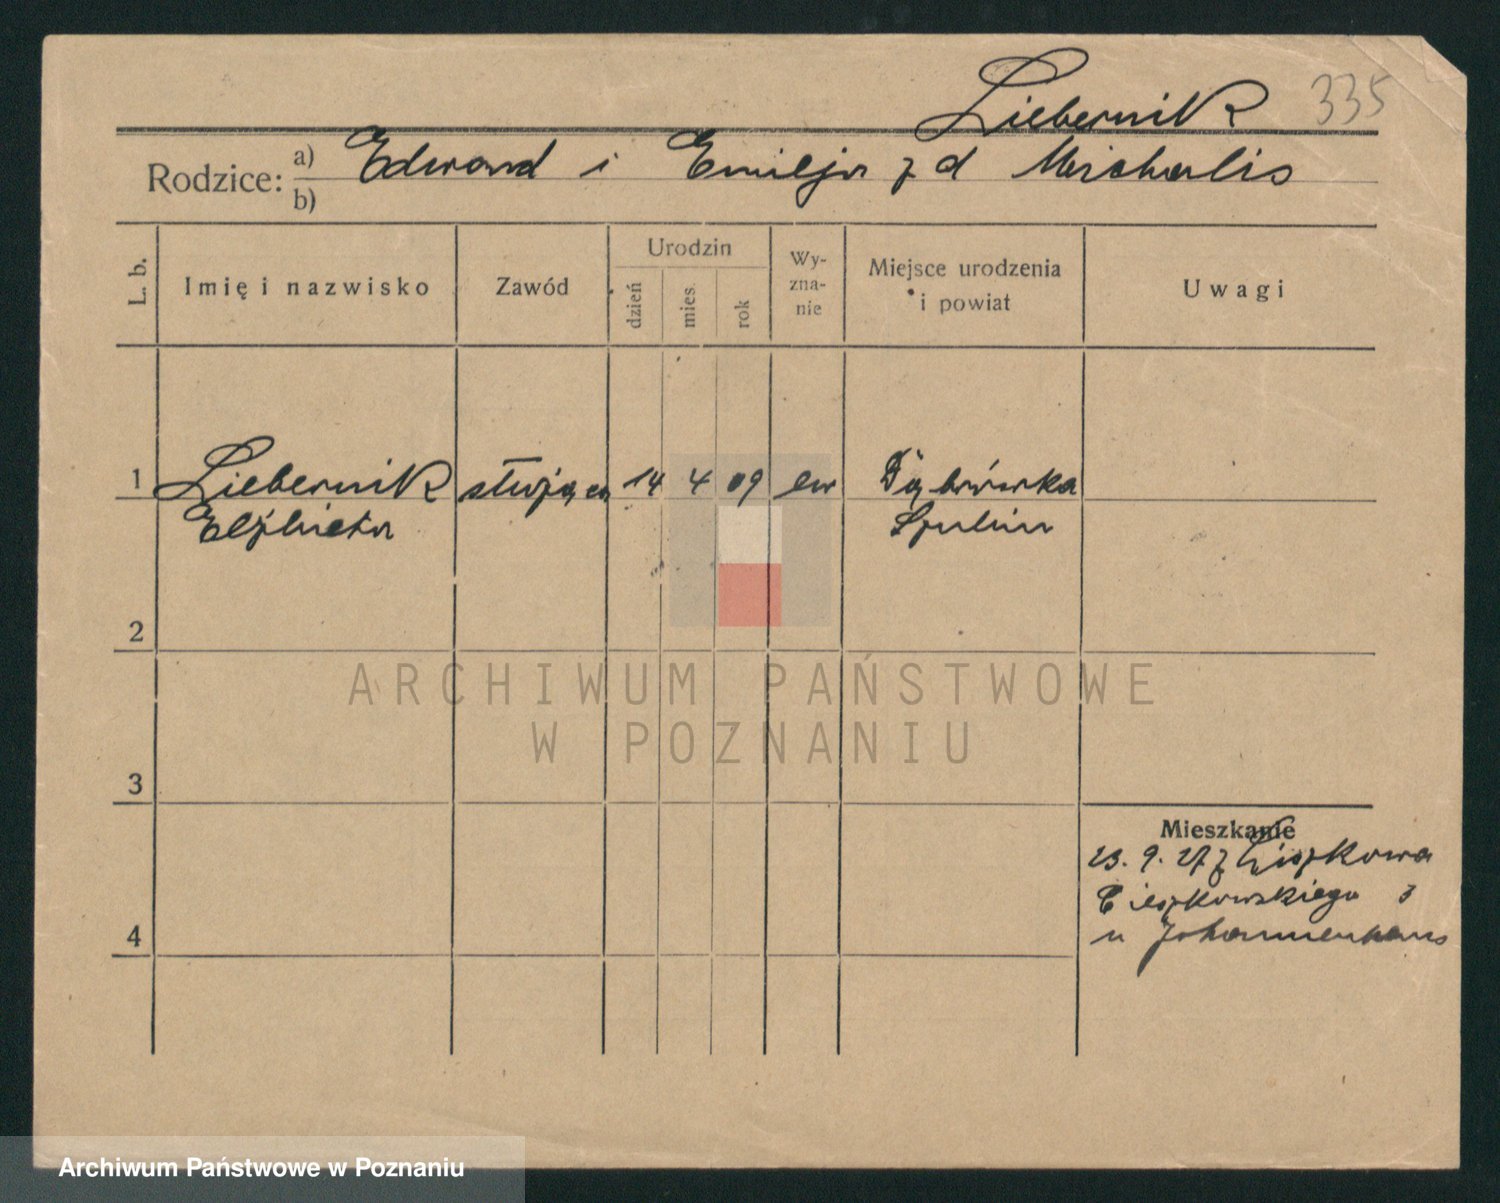 Liebernik 335
Rodzice: a) Edward i Emilja z d Michalis
b)
L. b.
Imię i nazwisko
Zawód
Urodzin
dzień
mies.
rok
Wy-
zna-
nie
Miejsce urodzenia
i powiat
Uwagi
1 Liebernik służąca 14 4 09 ew Dąbrówka
Elżbieta Szubin
2
3
4
Mieszkanie
23. 9. 27 z
Cieszkowskiego 3
u Johannenhaus
ARCHIWUM PAŃSTWOWE
W POZNANIU
Archiwum Państwowe w Poznaniu